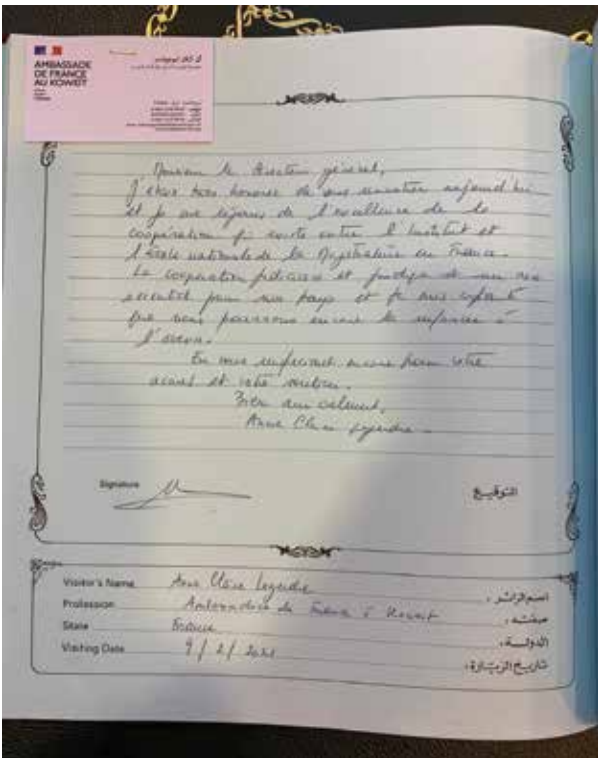 AMBASSADE
DE FRANCE
AU KOWEÏT
Monsieur le Directeur général,
J'étais très honorée de vous rencontrer aujourd'hui
et je me réjouis de l'excellence de la
coopération qui existe entre l'Institut et
l'École nationale de la Magistrature en France.
La coopération judiciaire et juridique est un axe
essentiel pour nos pays et je
que nous pourrons encore la renforcer à
l'avenir.
En vous remerciant encore pour votre
accueil et votre
Bien amicalement,
Anne Claire Legendre
Signature
التوقيع
Visitor's Name Anne Claire Legendre اسم الزائر :
Profession Ambassadrice de France à Koweït صفته :
State France الدولة :
Visiting Date 9/2/2021 تاريخ الزيارة :